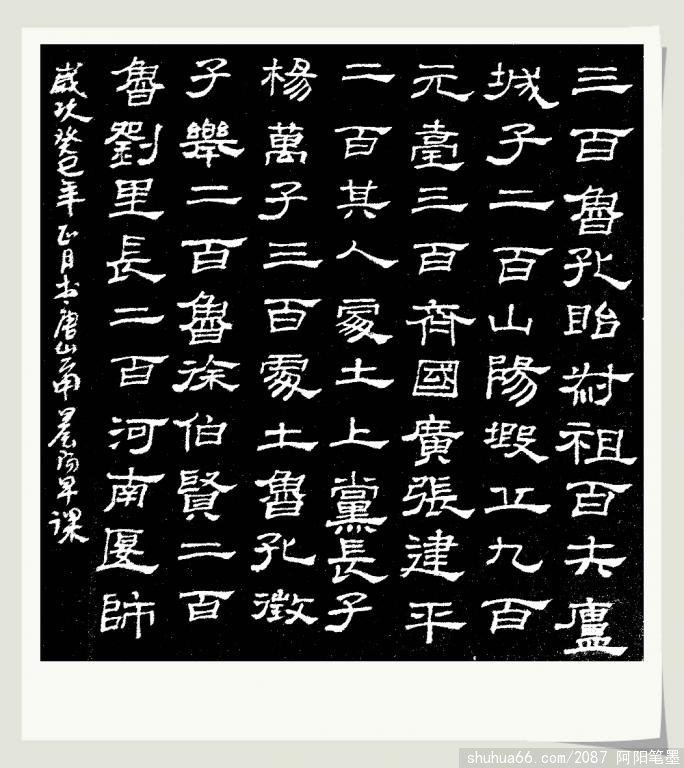 三百魯孔昭叔祖百亓廬
城子二百山陽瑕丘九百
元臺三百齊國廣張建平
二百其人處士上黨長子
楊萬子三百處士魯孔徵
子舉二百魯徐伯賢二百
魯劉里長二百河南匽師
歲次癸巳年正月书唐山早課
shuhua66.com/2087 阿阳笔墨